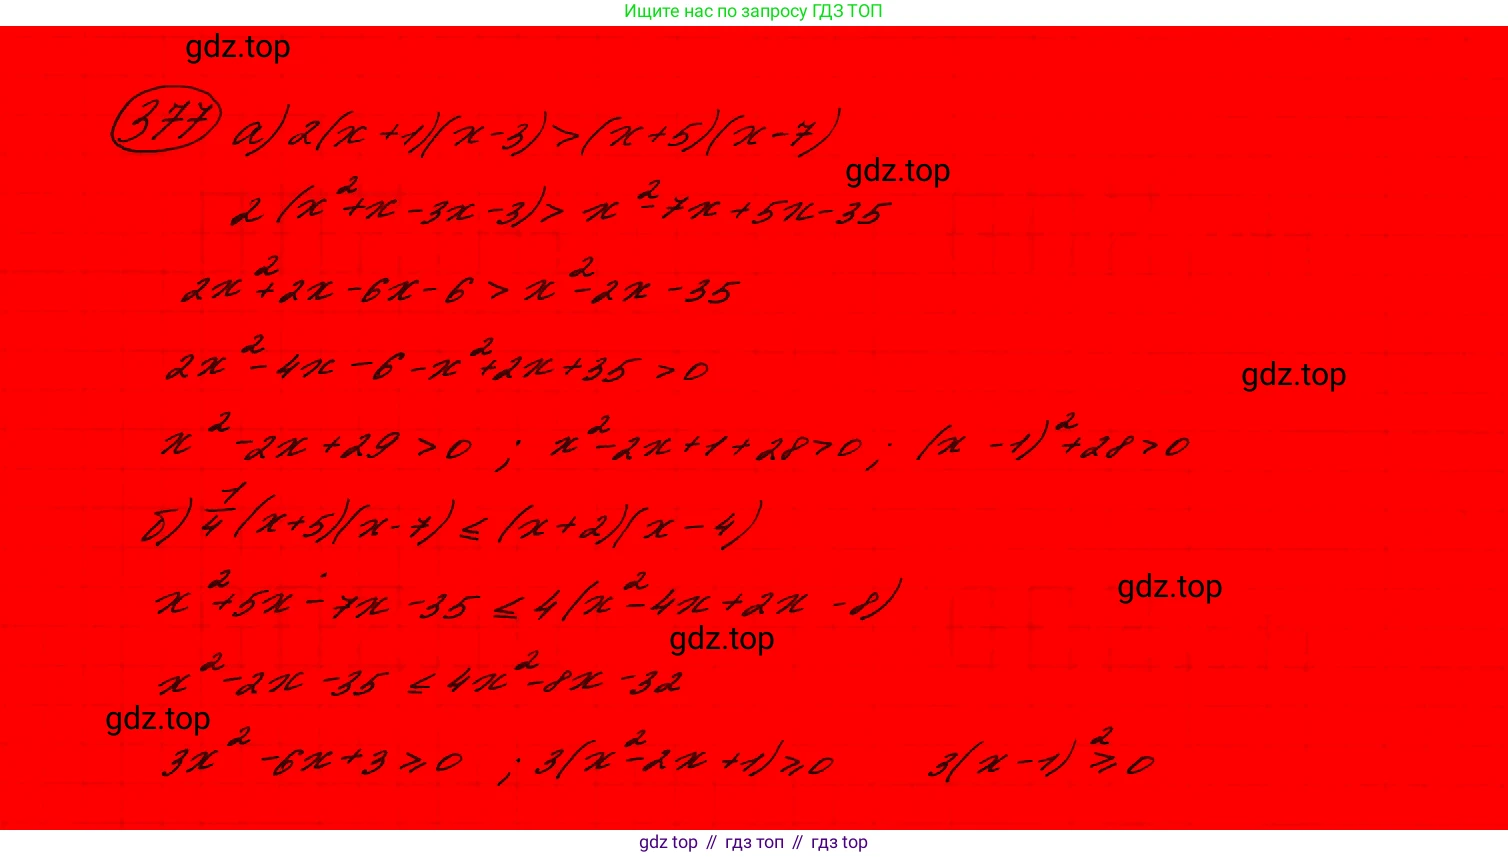 Ищите нас по запросу ГДЗ ТОП
gdz.top
377 а) 2(x+1)(x-3)>(x+5)(x-7)
gdz.top
2(x²+x-3x-3)>x²-7x+5x-35
2x²+2x-6x-6>x²-2x-35
2x²-4x-6-x²+2x+35>0
gdz.top
x²-2x+29>0; x²-2x+1+28>0; (x-1)²+28>0
б) 1/4(x+5)(x-7)≤(x+2)(x-4)
gdz.top
x²+5x-7x-35≤4(x²-4x+2x-8)
gdz.top
x²-2x-35≤4x²-8x-32
gdz.top
3x²-6x+3≥0; 3(x²-2x+1)≥0 3(x-1)²≥0
gdz top // гдз топ // гдз top